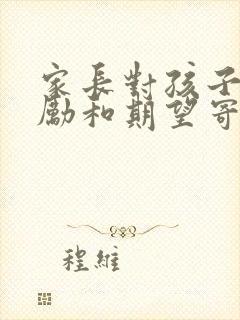 家長對孩子
勵和期望寄
程維